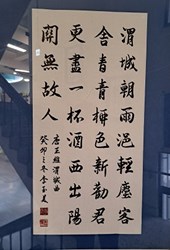 渭城朝雨浥輕塵客
舍青青柳色新勸君
更盡一杯酒西出陽
關無故人
唐王維渭城曲
癸卯之冬